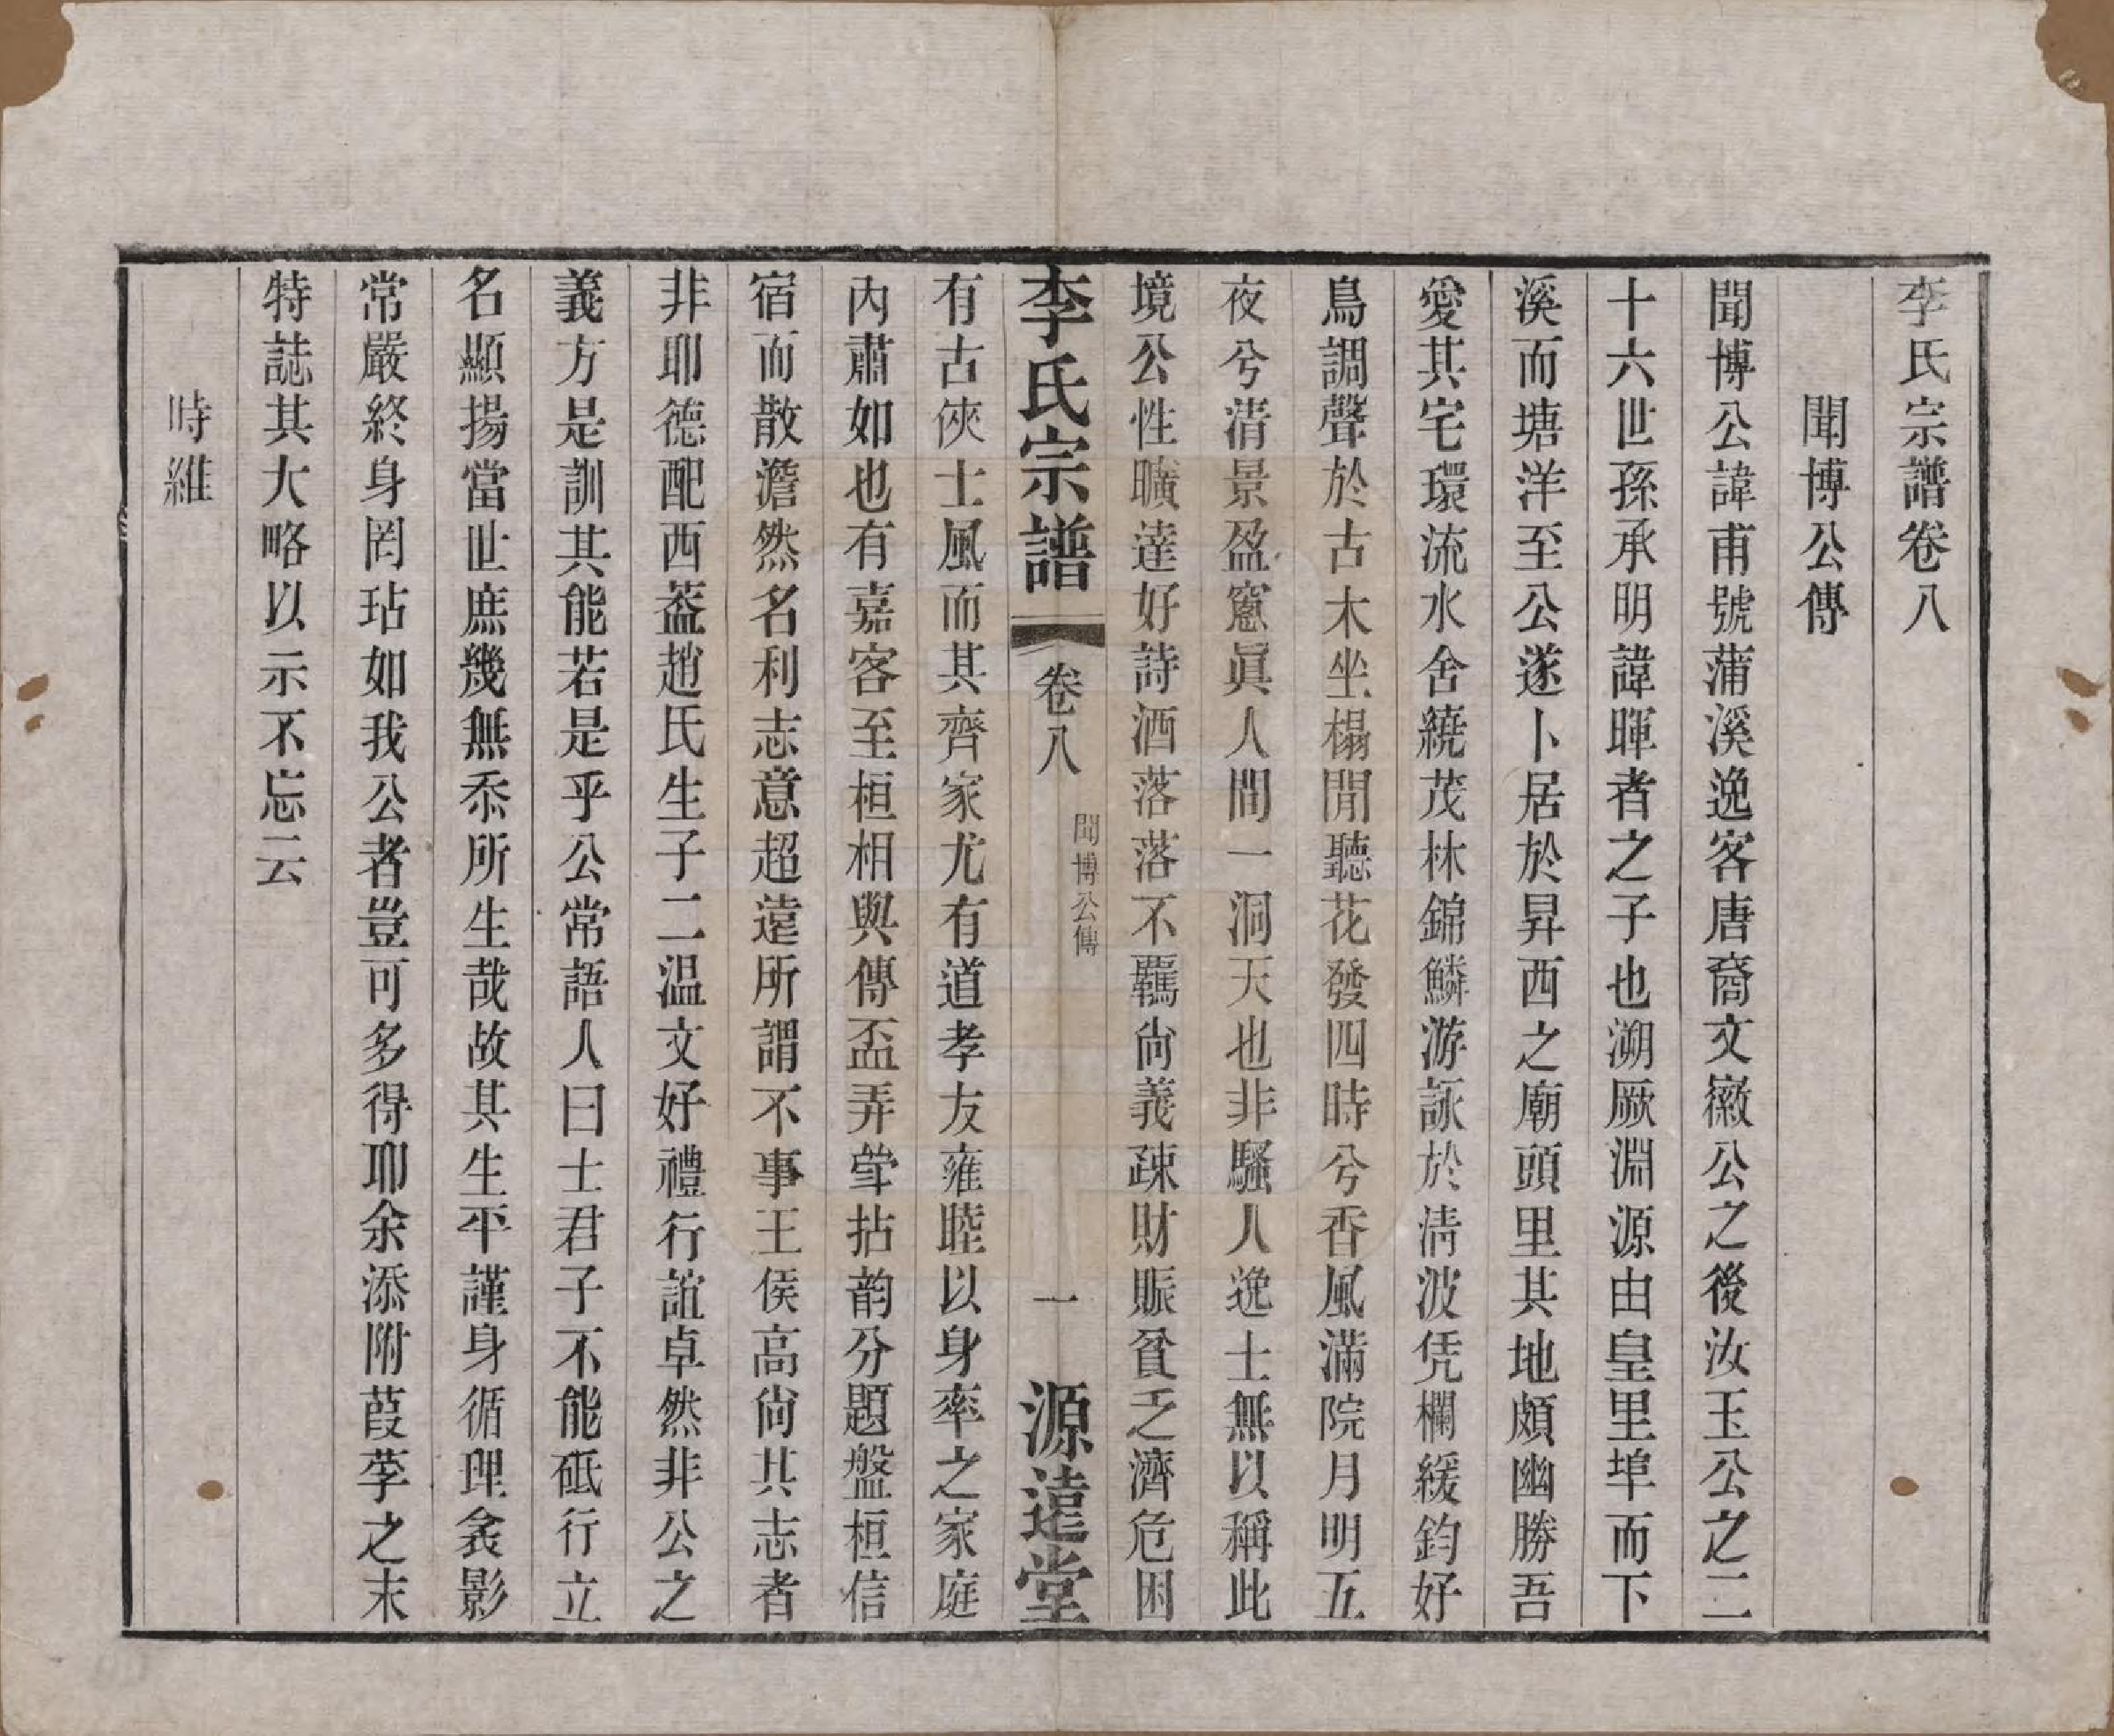 李氏宗譜卷八
聞博公傳
聞博公諱甫號蒲溪逸客唐裔文徽公之後汝玉公之二
十六世孫承明諱暉者之子也溯厥淵源由皇里埠而下
溪而塘洋至公遂卜居於昇西之廟頭里其地頗幽勝吾
愛其宅環流水舍繞茂林錦鱗游詠於清波凭欄緩釣好
鳥調聲於古木坐榻閒聽花發四時兮香風滿院月明五
夜兮清景盈窻眞人間一洞天也非騷人逸士無以稱此
境公性曠達好詩酒落落不羈尚義疎財賑貧乏濟危困
李氏宗譜 卷八 聞博公傳 一 源遠堂
有古俠士風而其齊家尤有道孝友雍睦以身率之家庭
內肅如也有嘉客至桓相與傳盃弄斝拈韵分題盤桓信
宿而散澹然名利志意超遠所謂不事王侯高尚其志者
非耶德配西葢趙氏生子二温文好禮行誼卓然非公之
義方是訓其能若是乎公常語人曰士君子不能砥行立
名顯揚當世庶幾無忝所生哉故其生平謹身循理衾影
常嚴終身罔玷如我公者豈可多得耶余添附葭莩之末
特誌其大略以示不忘云
時維